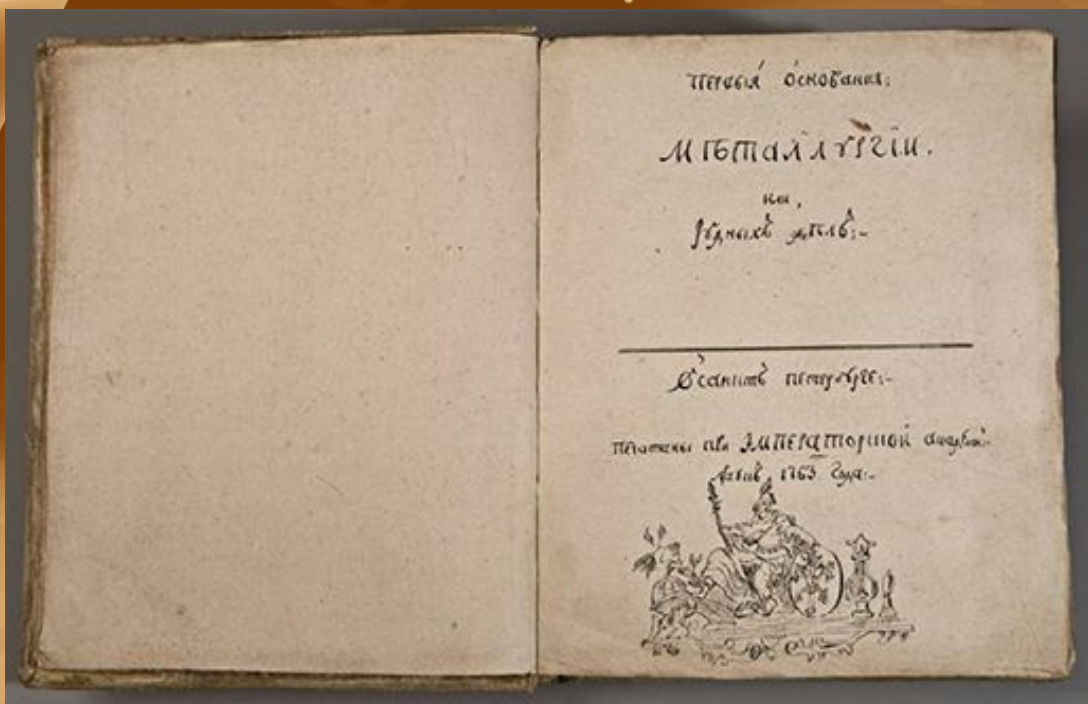 Первыя основания:
МѢталлургіи.
Рудныхъ дѣлъ:-
Всанктъ петербурге:-
Печатаны при Императорской академіи-
наукъ, 1763 года:-